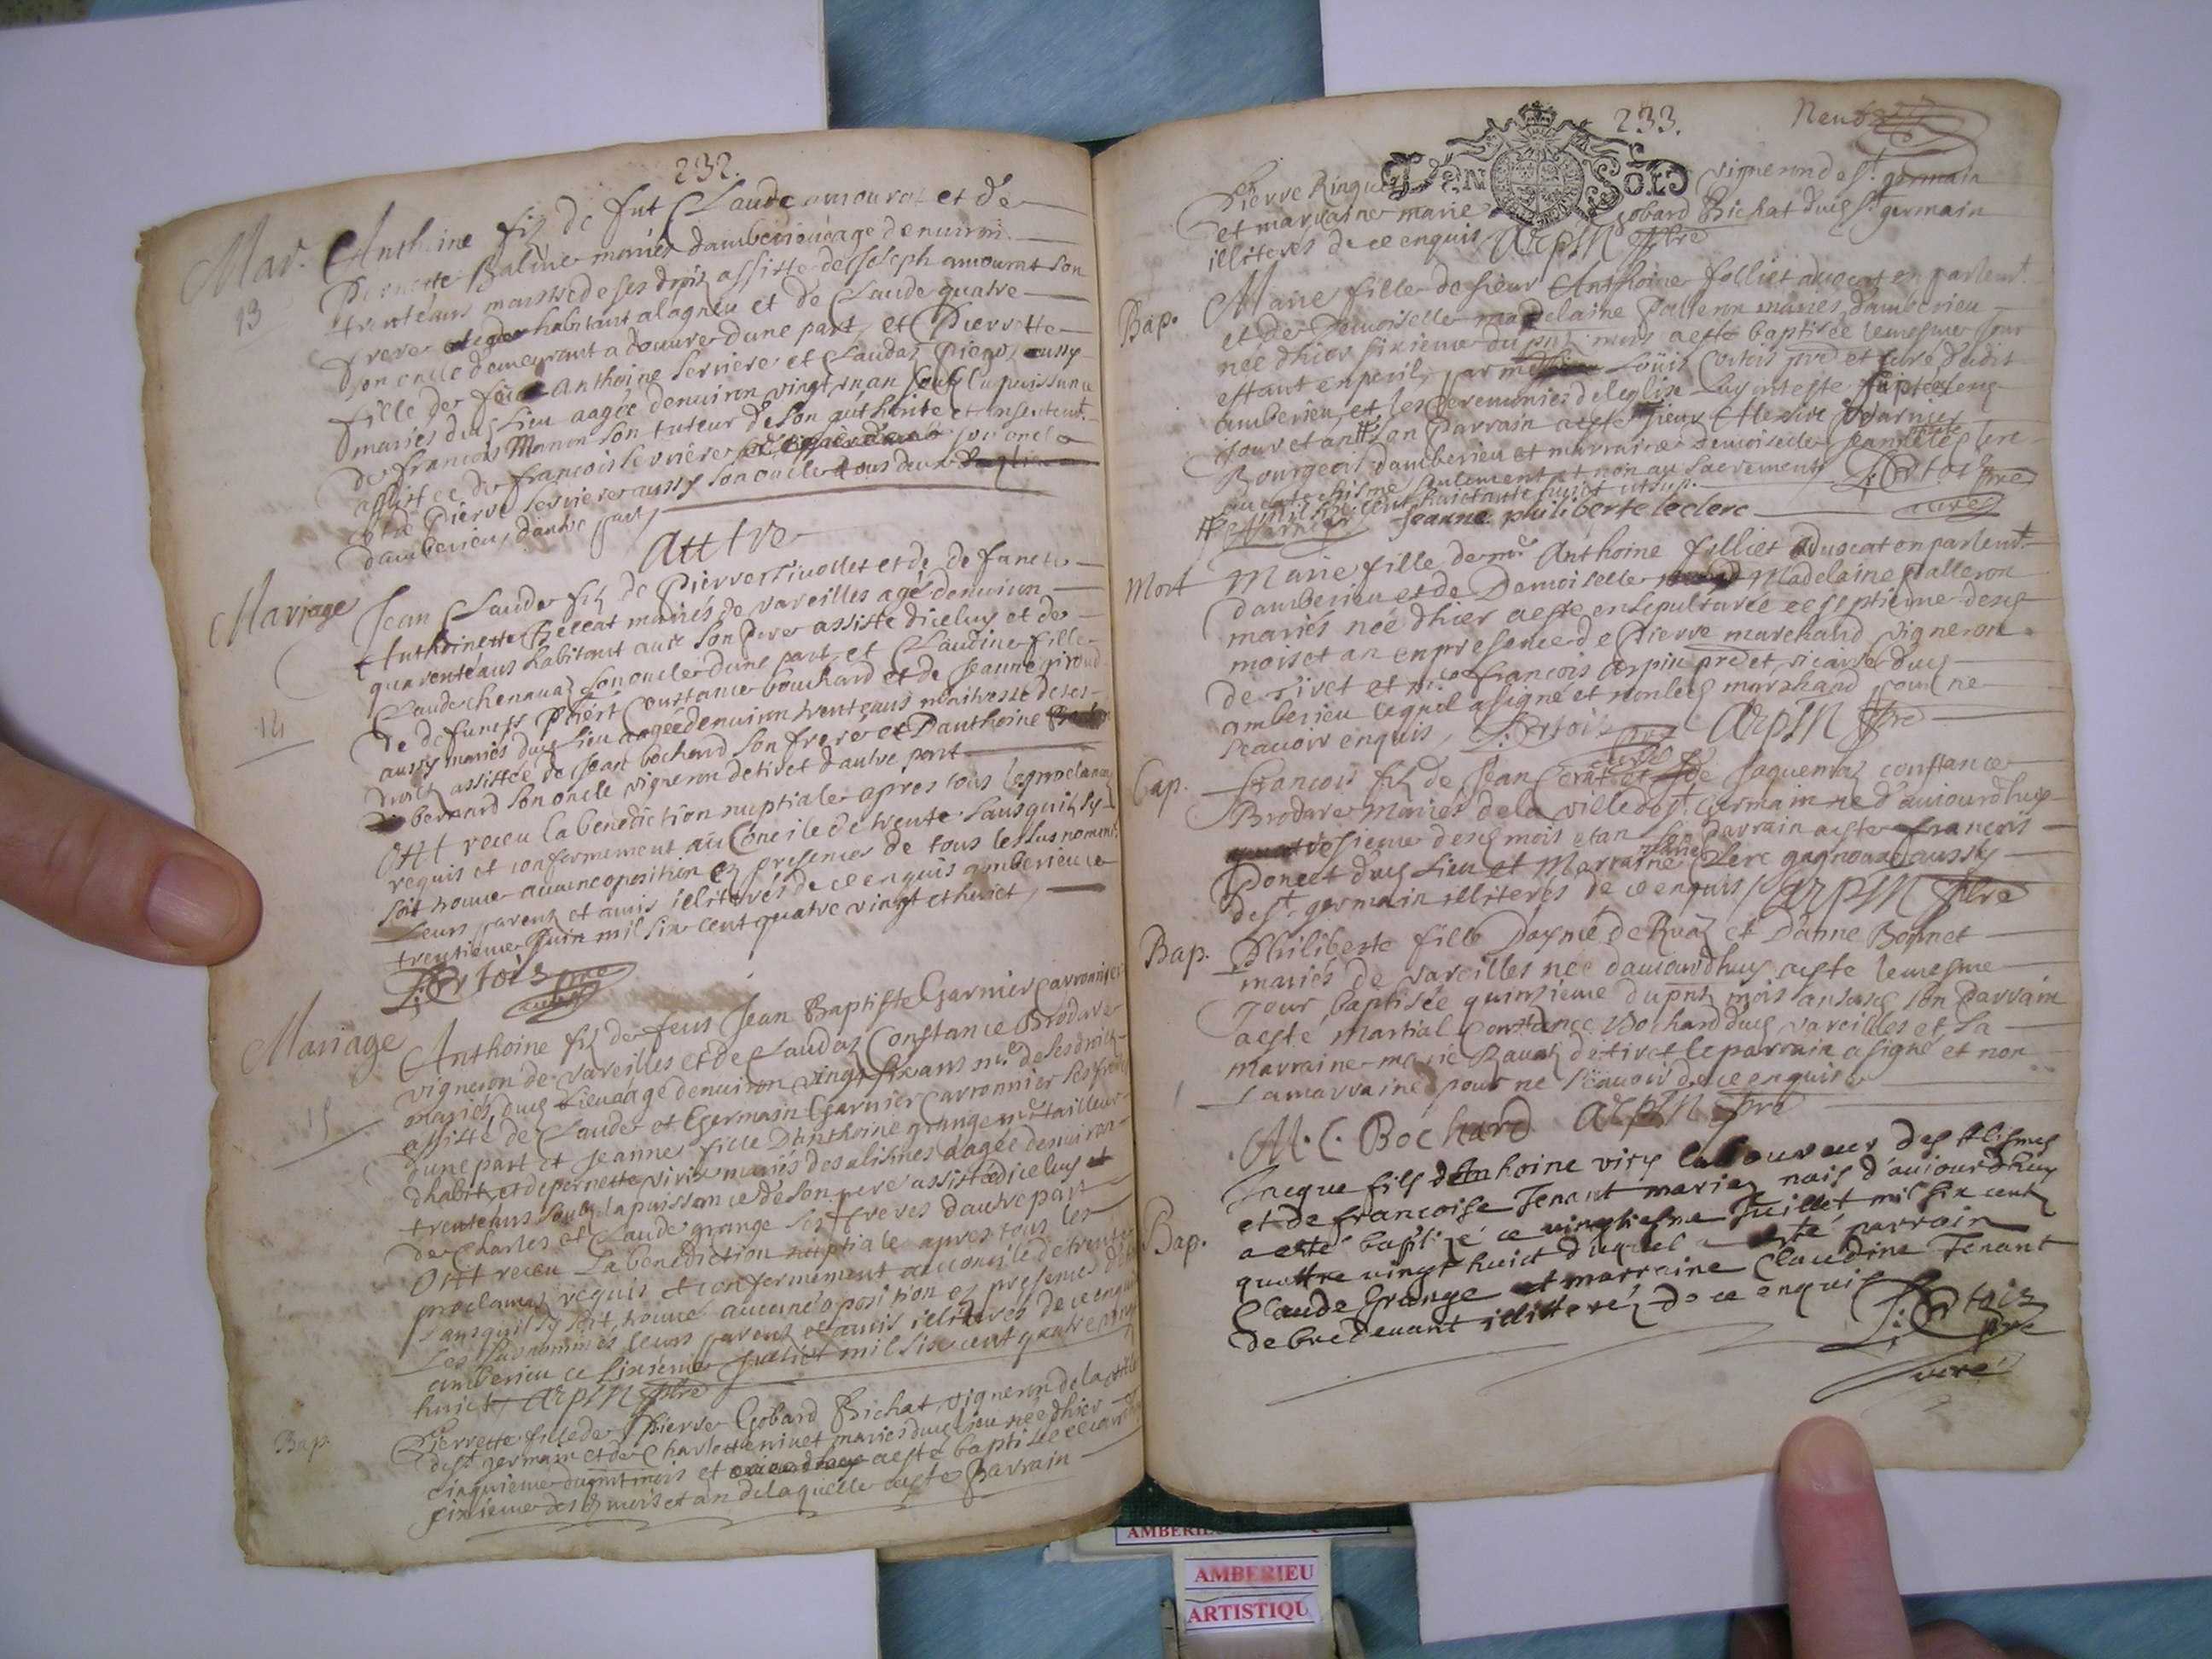 232.
Mar. Anthoine filz de fut Claude amourat et de
13
Pernette Baline mariés damberieu eage denuiron
trenteans maistre de ses droitz assisté de Joseph amourat son
frere habitant a lagnieu et de Claude quatre
son oncle demeurant a douure dune part, et Pierrette
fille de feu Anthoine Serriere et Claudaz Pieros aussy
mariés dud lieu aagée denuiron vingt un an soub la puissance
de françois Monon son tuteur de son authorité et consentemt.
assistée de francois serriere son oncle
et de Pierre serriere aussy son oncle tous deux
damberieu, dautre part
Attre
Mariage Jean Claude filz de Pierre Tiuollet et de defuncte
Anthoinette Beccat mariés de vareilles agé denuiron
quaranteans habitant auec son pere assisté diceluy et de
Claude chenauaz son oncle dune part, et Claudine fille
de defunctz Constance bouchard et de Jeanne giroud
14
aussy mariés dud lieu aagée denuiron trenteans maitresse de ses
droitz assistée de Jean bochard son frere et Danthoine
bernard son oncle vigneron de tiret dautre part
Ont receu la benediction nuptiale apres tous les proclamaz
requis et conformement au Concile de trente sansquil sy
soit trouue aucune oposition ez presences de tous les susnommes
Leurs parentz et amis illiterés de ce enquis amberieu ce
trentieme Juin mil six cent quatre vingt et huict,
L: Cortois pre
curé
Mariage Anthoine filz de feu Jean Baptiste Garnier Carronnier
vigneron de vareilles et de Claudaz Constance Brodare
mariés dud lieu aagé denuiron vingt six ans mre de ses droitz
15
assisté de Claude et Germain Garnier Carronnier ses freres
dune part et Jeanne fille Danthoine grange mre tailleur
dhabitz et de pernette viris mariés des alismes aagée denuiron
trenteans soubz la puissance de son pere assistée diceluy et
de Charles et Claude grange ses freres dautre part
Ont receu la benediction nuptiale apres tous les
proclamaz requis et conformement au concile de trente
sansquil sy soit trouué aucune oposition ez presences de
Les susnommés leurs parentz et amis illiterés de ce enquis
amberieu ce sixieme Juillet mil six cent quatre vingt
huict, Arpin pbre
Bap. Pierrette fille de Pierre Gobard Bichat vigneron de la ville
de st germain et de Charlotte niuet mariés dud lieu née dhier
cinquieme du pnt mois et aeste baptisée ce iourdhuy
sixieme desd mois et an de laquelle aeste Parrain
233.
Neuf
DEN SOLS
Pierre Ringuet vigneron de st. germain
et marraine marie gobard Bichat dud st germain
illiteres de ce enquis Arpin pbre
Bap. Marie fille de sieur Anthoine folliet aduocat en parlemt.
et de Demoiselle madelaine Palleron mariés damberieu
née dhier sixieme du pnt mois aesté baptisée le mesme jour
estant en peril, par Loüis Cortois pre et curé dudit
amberieu, et les ceremonies de leglise luy ont esté suplées
iour et an son Parrain aeste sieur
Bourgeois damberieu et marraine demoiselle Jeanne
au catechisme seulement et non au sacrement L: Cortois pre
mil six cent huictante huict ut sup. curé
Jeanne philiberte leclerc
Mort Marie fille de mre Anthoine folliet Aduocat en parlemt.
damberieu et de Demoiselle Madelaine palleron
mariés née dhier aeste ensepulturée ce septieme desd
mois et an en presence de Pierre marchand vigneron
de Tiret et mre francois Arpin pre et vicaire dud
amberieu lequel a signé et non led marchand pour ne
scauoir enquis, L: Cortois pre curé Arpin pbre
Bap. francois filz de Jean et de Jaquemaz constance
Brodare mariés de la ville de st. Germain né d'auiourdhuy
sieme desd mois et an son Parrain aeste francois
Poncet dud lieu et Marraine marie Clere gagnoux aussy
de st. germain illiteres de ce enquis / Arpin pbre
Bap. Philiberte fille Daymé de Ruaz et Danne Bonnet
mariés de vareilles née dauiourdhuy aeste le mesme
Jour baptisée quinzieme du pnt mois an susd son Parrain
aesté Martial Constance Bochard dud vareilles et sa
marraine marie Rauaz de tiret le parrain a signé et non
la marraine pour ne scauoir de ce enquis
M. C. Bochard Arpin pre
Bap. Jacque fils dAnthoine viris laboureur des Alismes
et de francoise Tenant mariez nais d'auiourdhuy
a esté baptizé ce vingtiesme Juillet mil six centz
quattre vingt huict duquel a esté parrain
Claude Grange et marraine Claudine Tenant
de bredeuant illitteréz de ce enquis
L: Cortois
pre
curé
AMBERIEU
ARTISTIQU